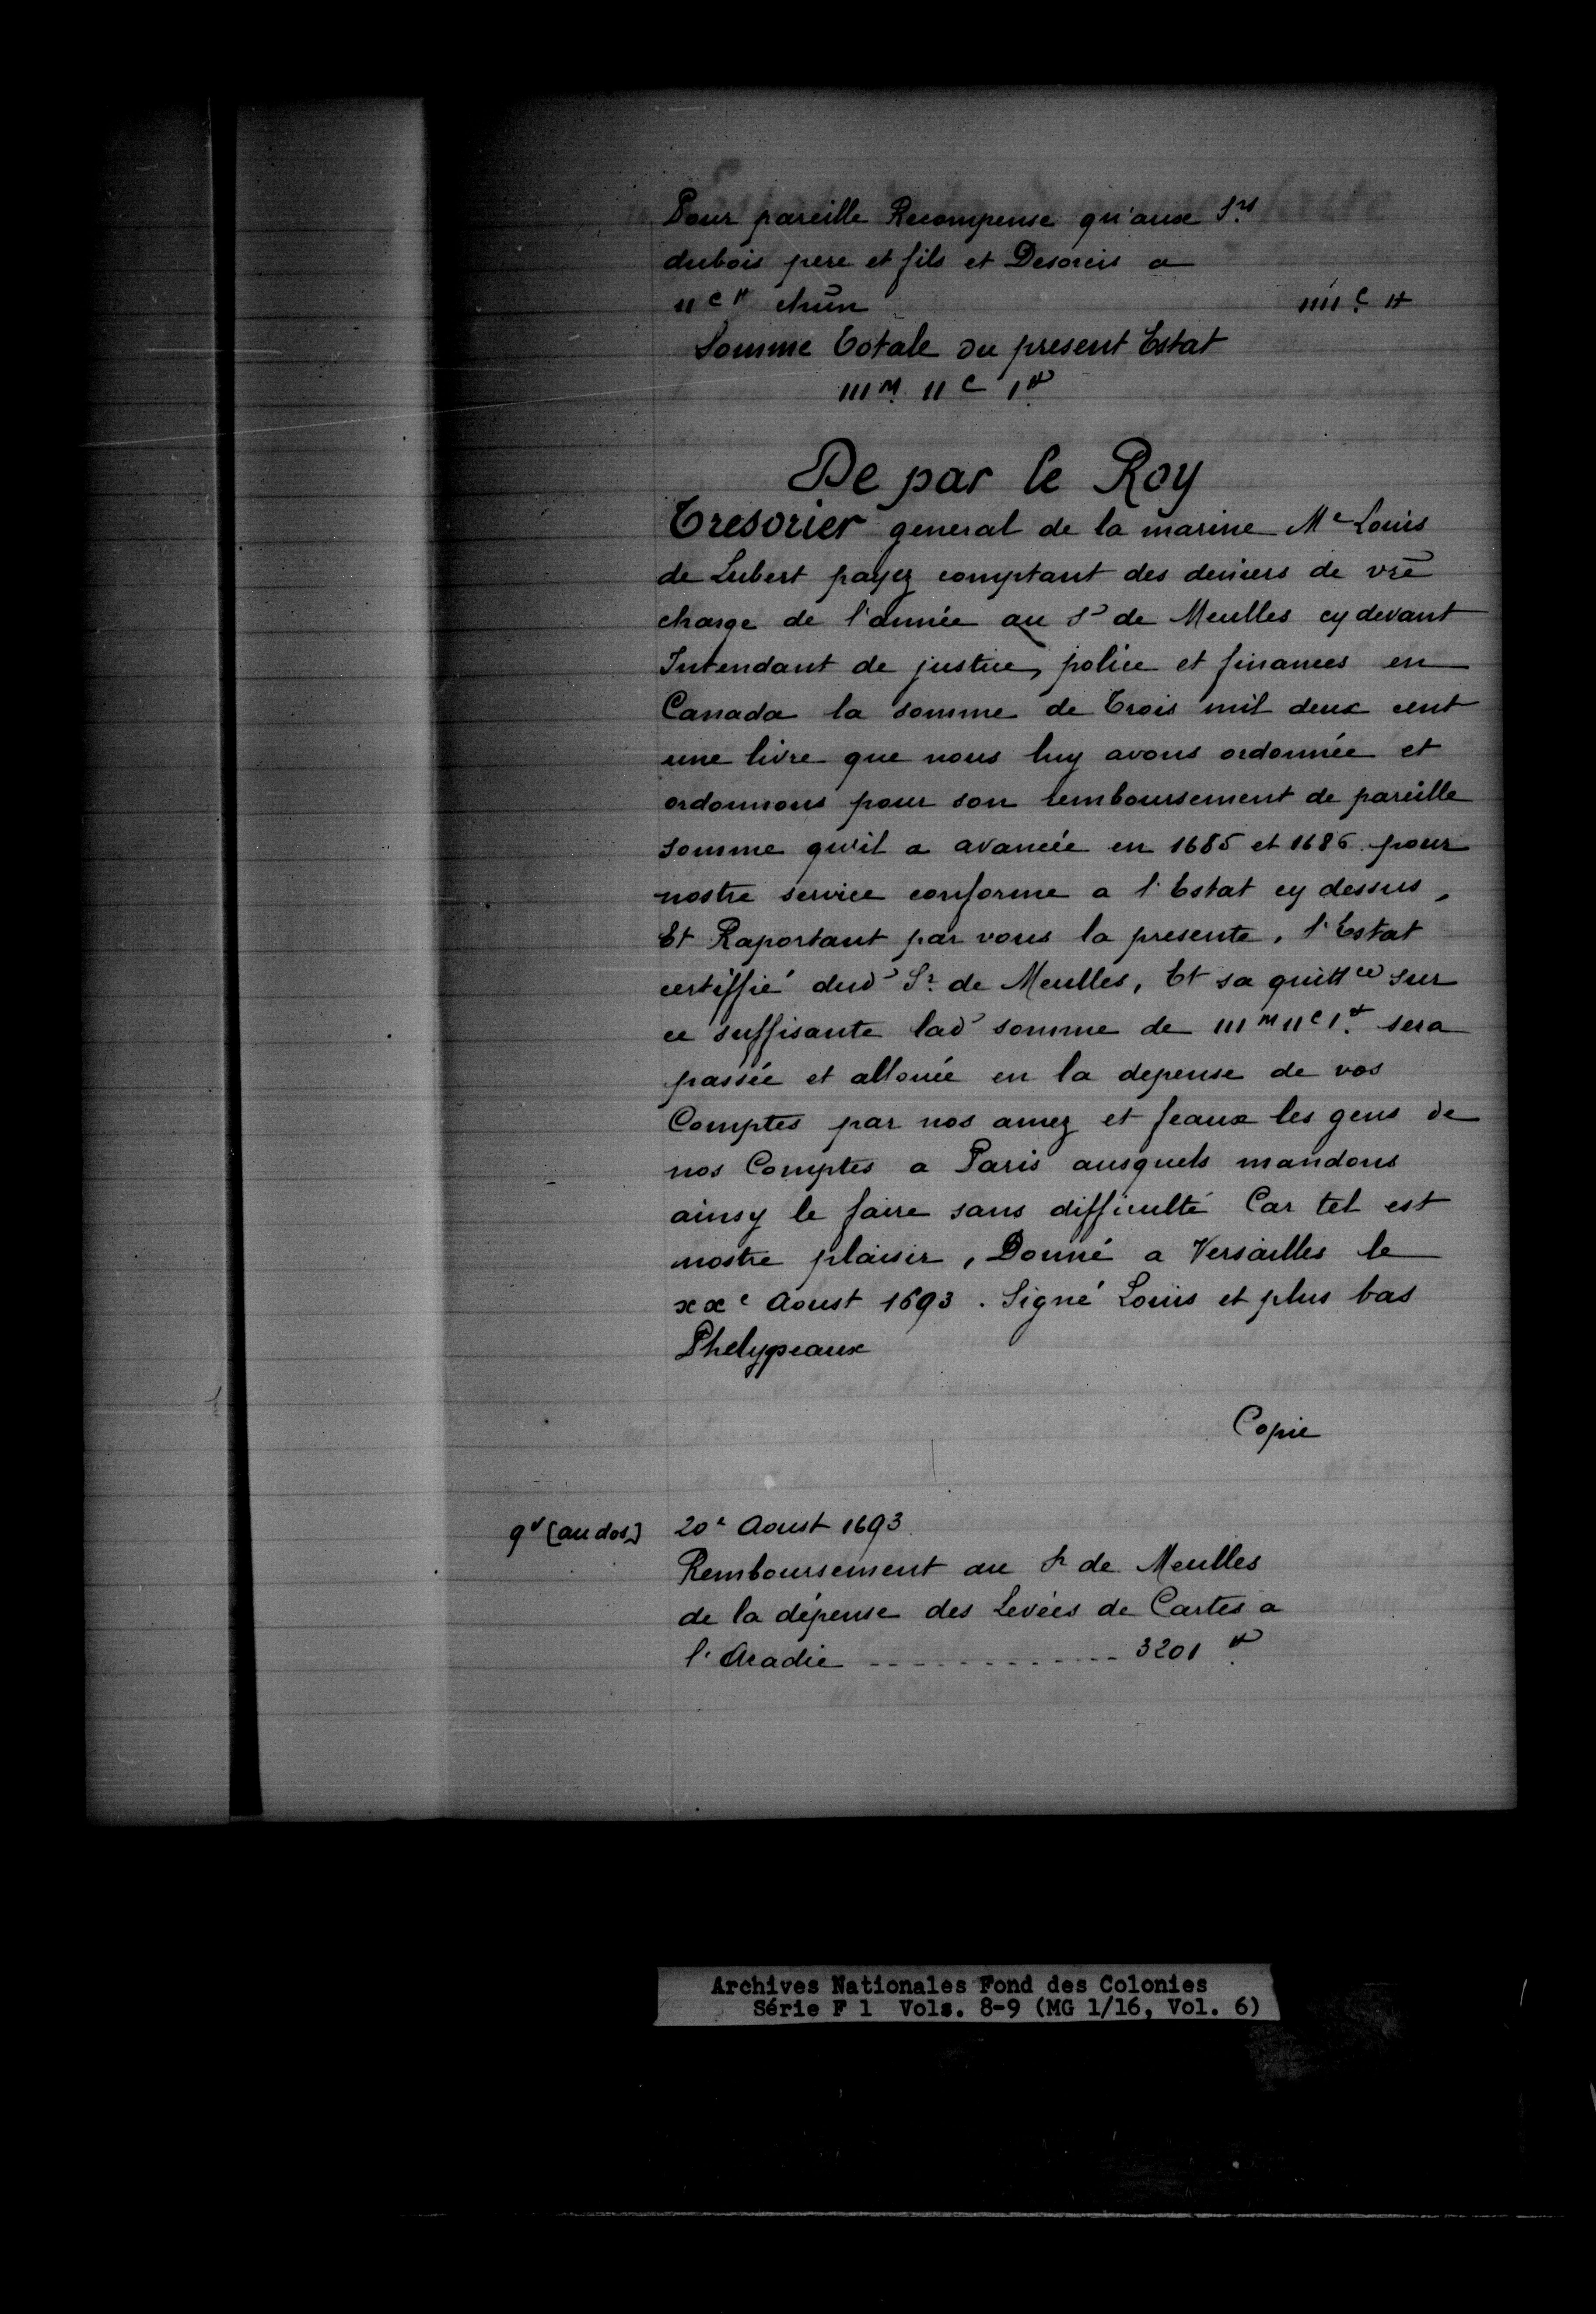 Pour pareille Recompense qu'aux Srs
dubois pere et fils et Desorcis a
IIc ₶ chūn IIIIc ₶
Somme Totale du present Estat
IIIM IIc I₶
De par le Roy
Tresorier general de la marine Me Louis
de Lubert payez comptant des deniers de vrē
charge de l'année au Sr de Meulles cy devant
Intendant de justice, police et finances en
Canada la somme de Trois mil deux cent
une livre que nous luy avons ordonnée et
ordonnons pour son remboursement de pareille
somme qu'il a avancée en 1685 et 1686 pour
nostre service conforme a l'Estat cy dessus,
Et Raportant par vous la presente, l'Estat
certiffié dud' Sr de Meulles, Et sa quittce sur
ce suffisante lad' somme de IIIM IIc I₶ sera
passée et allouée en la depense de vos
Comptes par nos amez et feaux les gens de
nos Comptes a Paris ausquels mandons
ainsy le faire sans difficulté Car tel est
nostre plaisir, Donné a Versailles le
xxe Aoust 1693. Signé Louis et plus bas
Phelypeaux
Copie
9v [au dos] 20e Aoust 1693
Remboursement au Sr de Meulles
de la dépense des Levées de Cartes a
l'Acadie ------------- 3201 ₶
Archives Nationales Fond des Colonies
Série F 1 Vols. 8-9 (MG 1/16, Vol. 6)